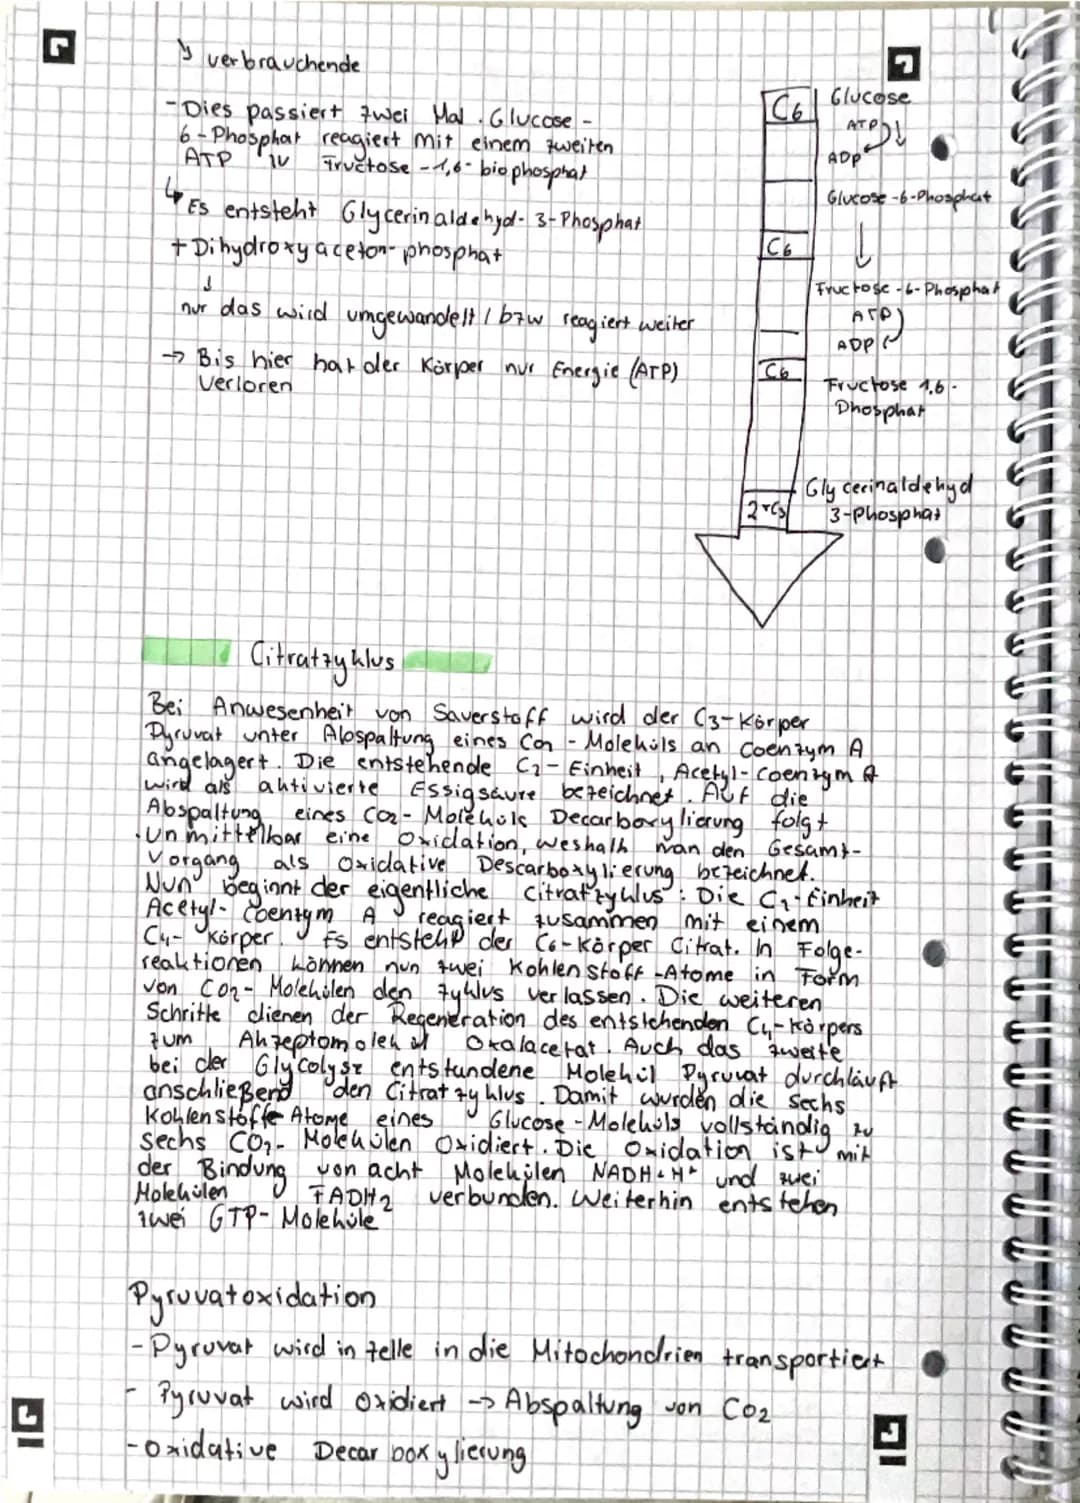 ↘ verbrauchende
- Dies passiert zwei Mal. Glucose -
6-Phosphat reagiert mit einem zweiten
ATP zu Fructose -1,6- biophosphat
↳ Es entsteht Glycerinaldehyd- 3-Phosphat
+ Dihydroxyaceton-phosphat
↓
nur das wird umgewandelt / bzw reagiert weiter
→ Bis hier hat der Körper nur Energie (ATP)
verloren
C6 Glucose
ATP
ADP
Glucose -6-Phosphat
C6
Fructose -6-Phosphat
ATP
ADP
C6
Fructose 1,6-
Phosphat
Glycerinaldehyd
2*C3 3-Phosphat
Citratzyklus
Bei Anwesenheit von Sauerstoff wird der C3-Körper
Pyruvat unter Abspaltung eines CO2 - Moleküls an Coenzym A
angelagert. Die entstehende C2- Einheit, Acetyl-Coenzym A
wird als aktivierte Essigsäure bezeichnet. Auf die
Abspaltung eines CO2- Moleküls Decarboxylierung folgt
unmittelbar eine Oxidation, weshalb man den Gesamt-
vorgang als Oxidative Descarboxylierung bezeichnet.
Nun beginnt der eigentliche Citratzyklus: Die C2-Einheit
Acetyl- Coenzym A reagiert zusammen mit einem
C4- Körper. Es entsteht der C6-Körper Citrat. In Folge-
reaktionen können nun zwei Kohlenstoff -Atome in Form
von CO2- Molekülen den Zyklus verlassen. Die weiteren
Schritte dienen der Regeneration des entstehenden C4-Körpers
zum Akzeptomolekül Oxalacetat. Auch das zweite
bei der Glycolyse entstandene Molekül Pyruvat durchläuft
anschließend den Citratzyklus. Damit wurden die sechs
Kohlenstoffe Atome eines Glucose -Moleküls vollständig zu
sechs CO2- Molekülen Oxidiert. Die Oxidation ist mit
der Bindung von acht Molekülen NADH+H+ und zwei
Molekülen FADH2 verbunden. Weiterhin entstehen
zwei GTP- Moleküle
Pyruvatoxidation
- Pyruvat wird in Zelle in die Mitochondrien transportiert
- Pyruvat wird Oxidiert -> Abspaltung von CO2
- Oxidative Decarboxylierung